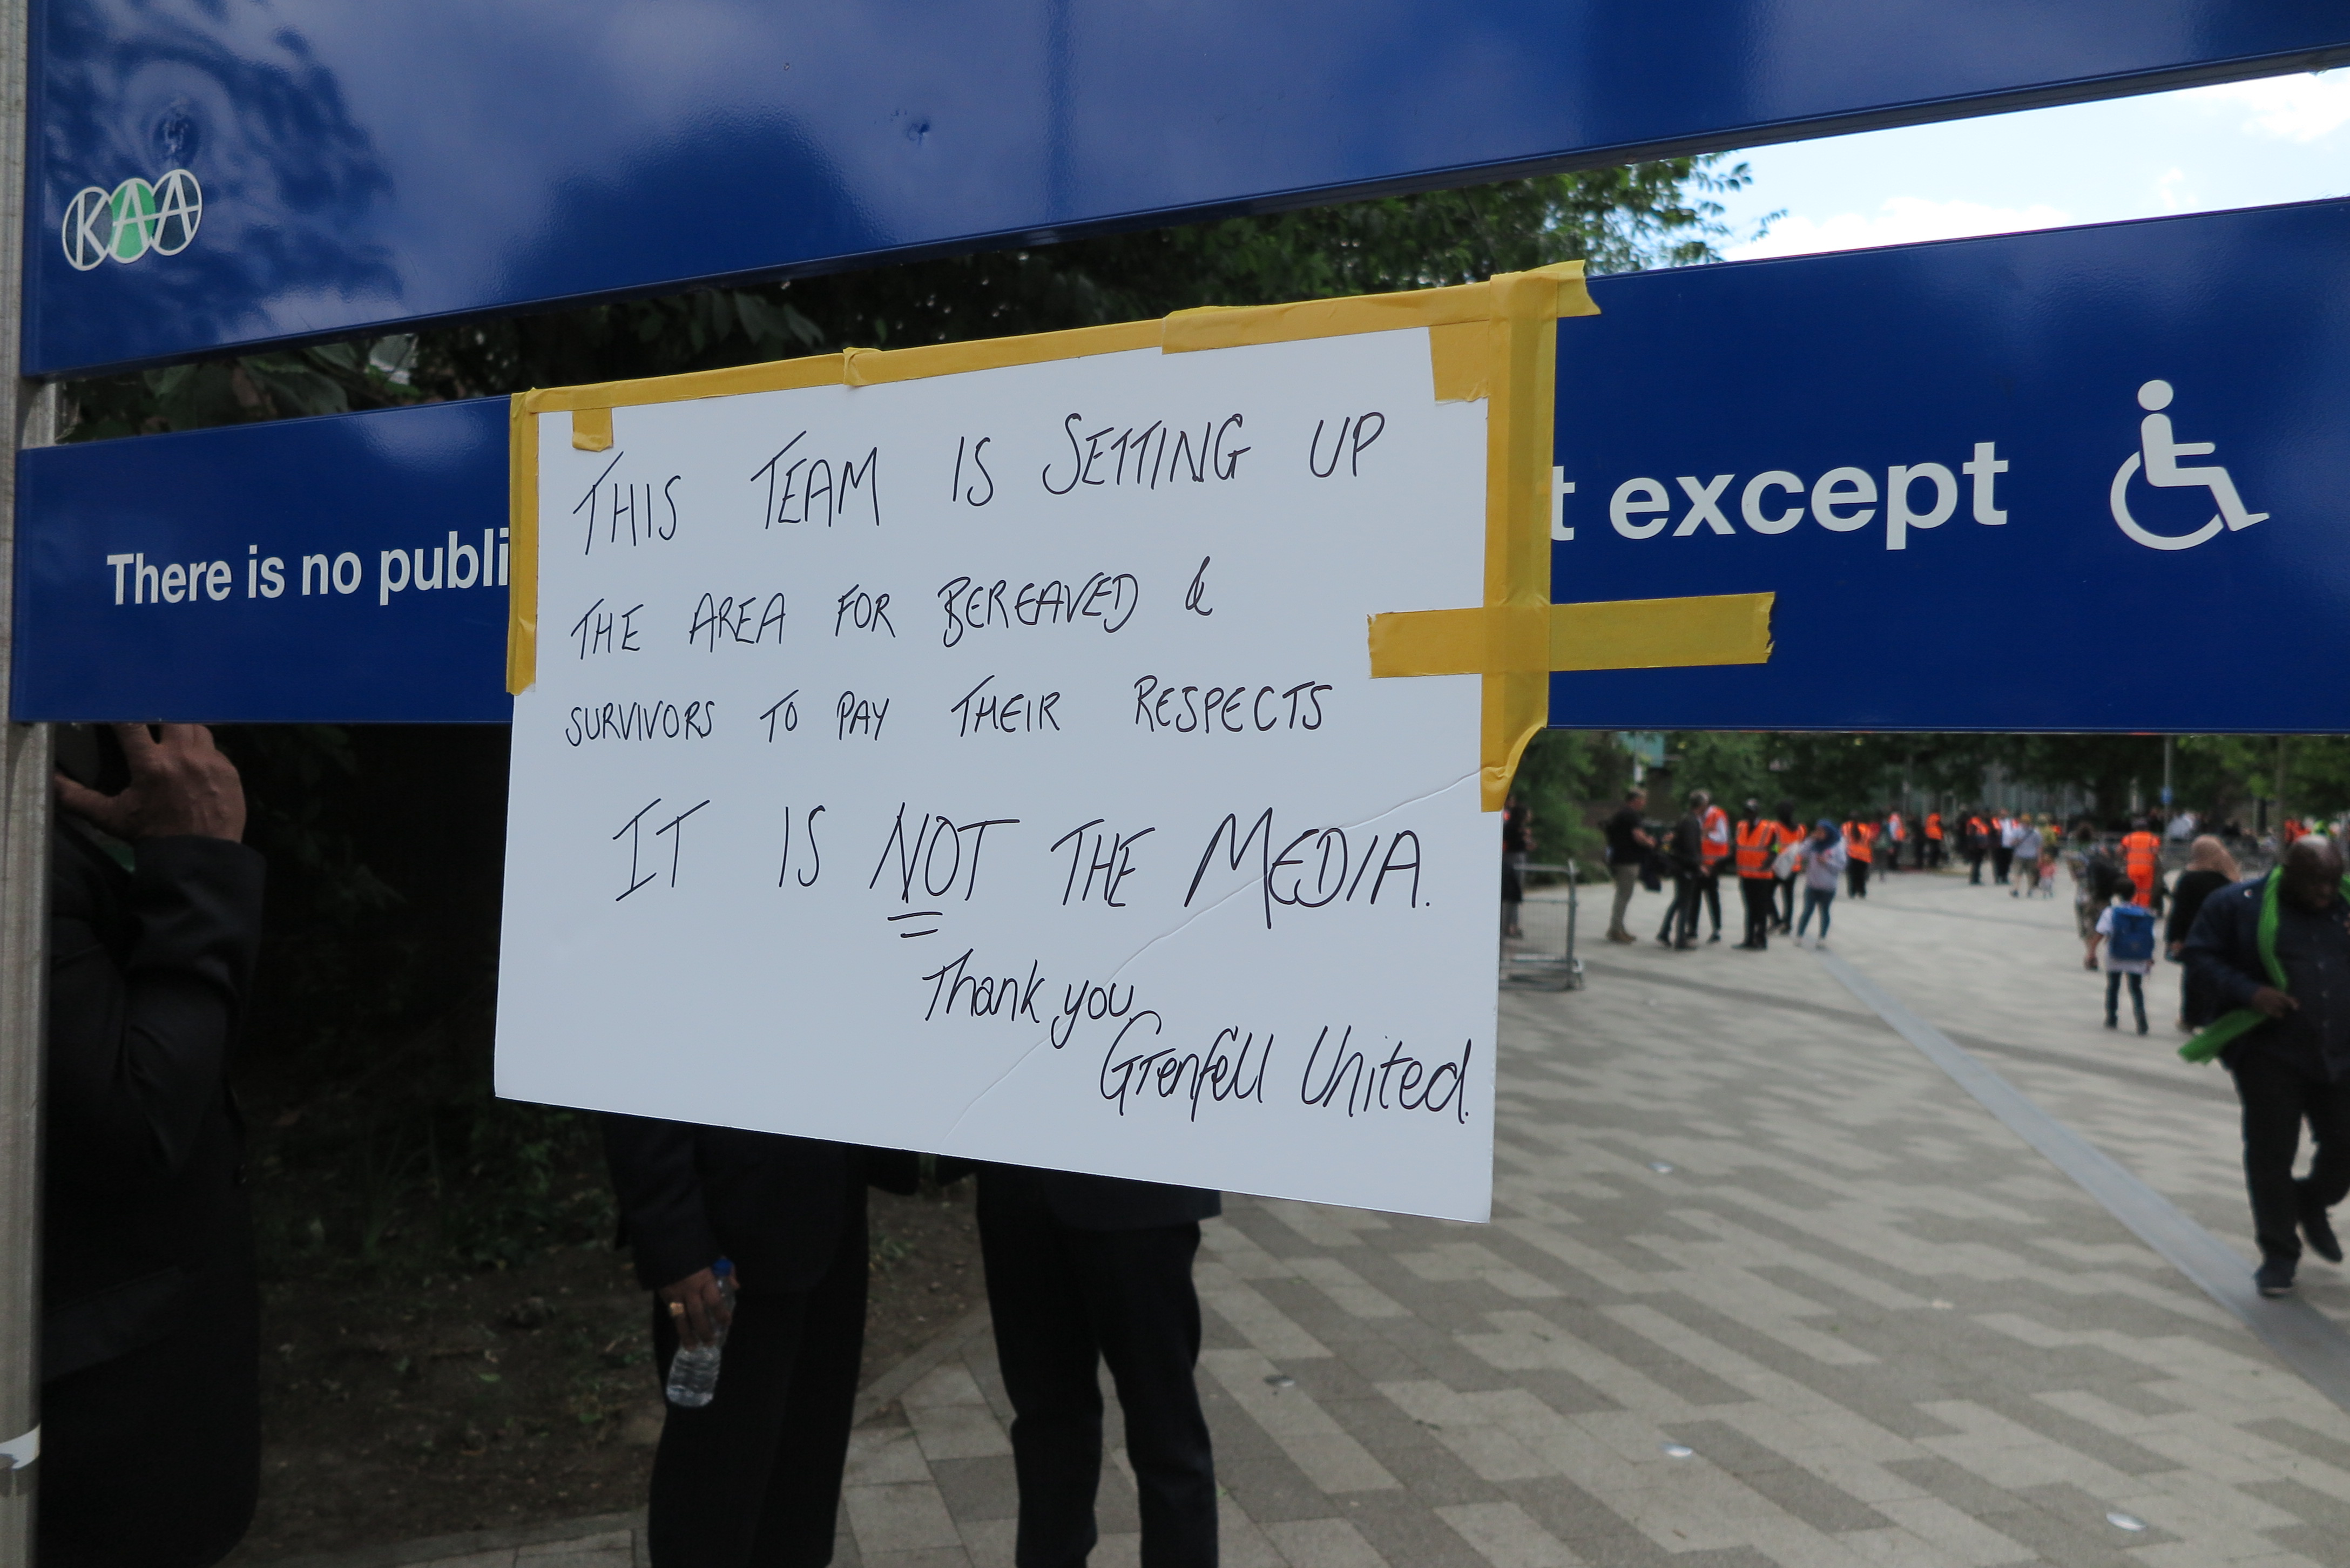 KAA
There is no publi
t except
THIS TEAM IS SETTING UP
THE AREA FOR BEREAVED &
SURVIVORS TO PAY THEIR RESPECTS
IT IS NOT THE MEDIA.
Thank you
Grenfell United.